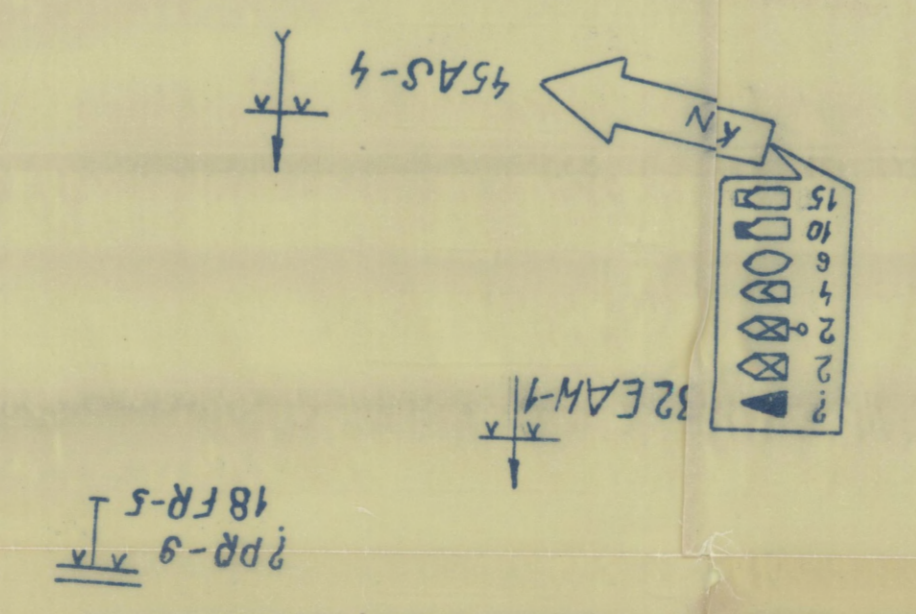 ?PR-9
18FR-5
32EAW-1
?
2
2
4
6
10
15
KN
45AS-4